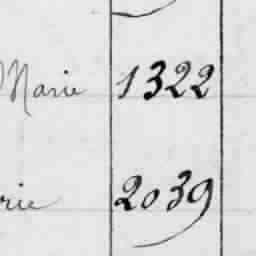 Marie 1322
rie 2039